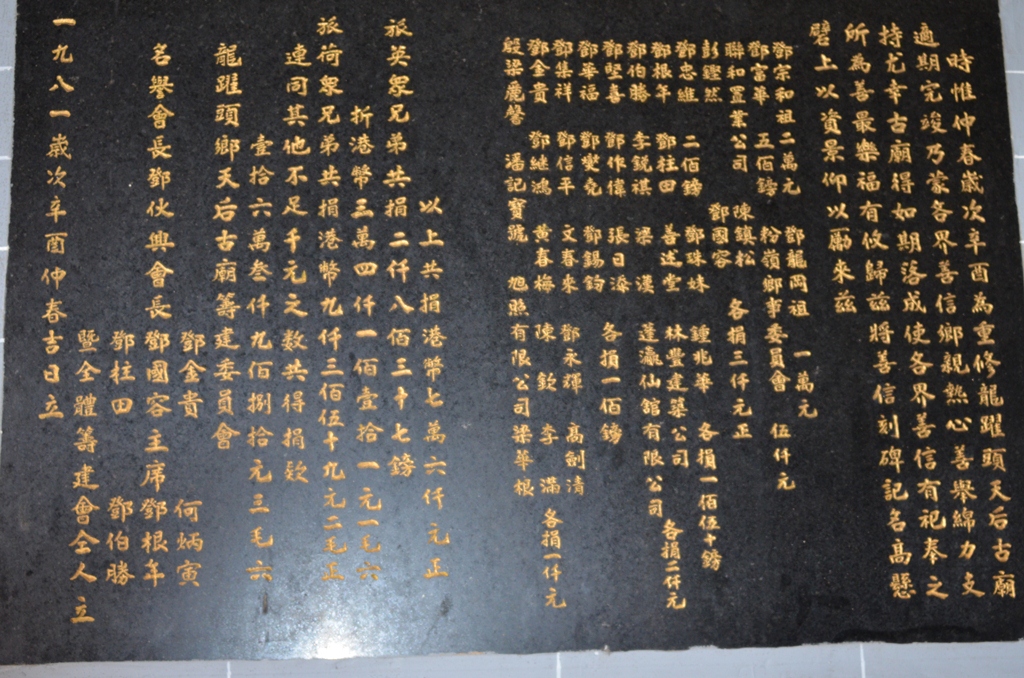 時惟仲春歲次辛酉為重修龍躍頭天后古廟
適期完竣乃蒙各界善信鄉親熱心善舉綿力支
持尤幸古廟得如期落成使各界善信有祀奉之
所為善最樂福有攸歸茲將善信刻碑記名高懸
壁上以資景仰以勵來茲
鄧龍岡祖 一萬元
鄧宗和祖二萬元 粉嶺鄉事委員會 伍仟元
鄧富華 五佰鎊
聯和置業公司 陳鎮松 各捐三仟元正
鄧國容
彭鏗然 鍾兆華 各捐一佰伍十鎊
鄧忠維 二佰鎊 鄧珠妹 林豐建築公司 各捐二仟元
鄧根年 鄧柱田 善述堂 蓬瀛仙舘有限公司
鄧伯勝 李銳祺 梁漢
鄧堅喜 鄧作偉 張日添 各捐一佰鎊
鄧華福 鄧燮堯 鄧錫鈞
鄧集祥 鄧信平 文春來 鄧永輝 高劍清
鄧金貴 鄧繼鴻 黃春梅 陳欽 李滿 各捐一仟元
殷梁麗馨 潘記寶號 旭照有限公司梁華根
以上共捐港幣七萬六仟元正
旅英眾兄弟共捐二仟八佰三十七鎊
折港幣三萬四仟一佰壹拾一元一毛六
旅荷眾兄弟共捐港幣九仟三佰伍十九元二毛正
連同其他不足千元之数共得捐款
壹拾六萬叁仟九佰捌拾元三毛六
龍躍頭鄉天后古廟籌建委員會
鄧金貴 何炳寅
名譽會長鄧伙興會長鄧國容主席鄧根年
鄧柱田 鄧伯勝
暨全體籌建會仝人立
一九八一歲次辛酉仲春吉日立